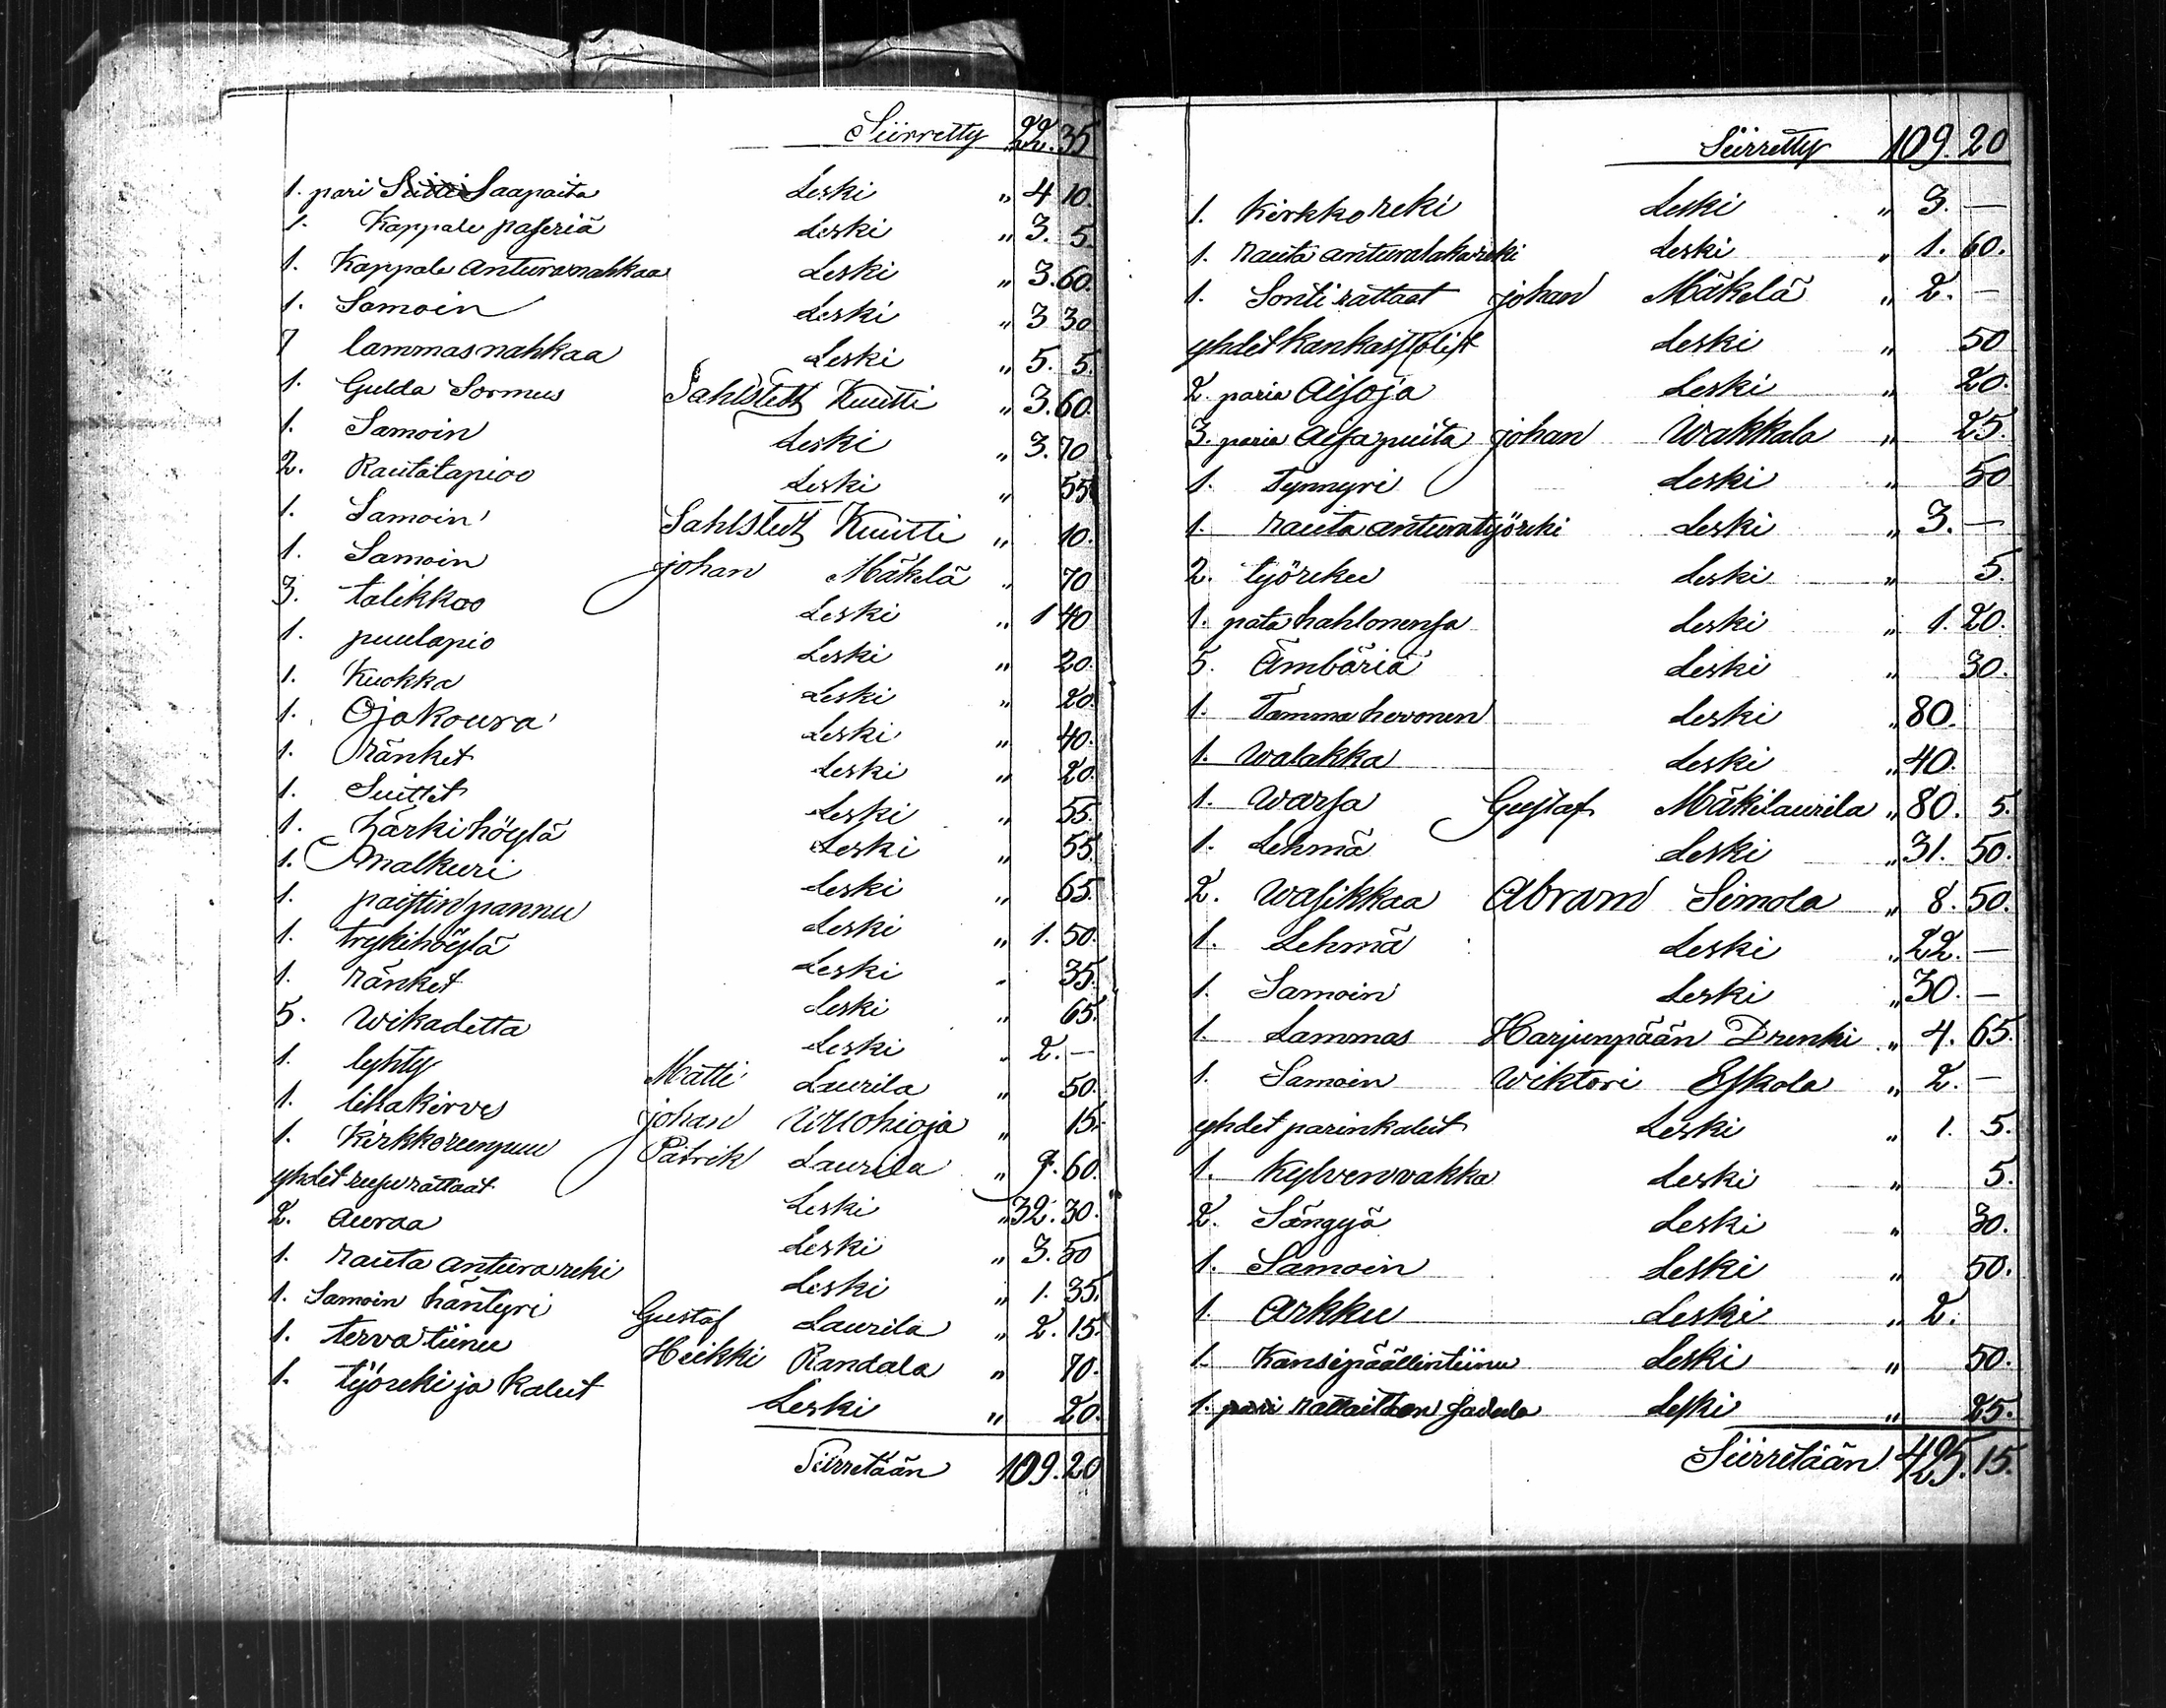 Siirretty 22.35
1. pari Saapaita Leski " 4 10.
1. Kappale paseriä Leski " 3. 5.
1. Kappale anturanahkaa Leski " 3.60.
1. Samoin Leski " 3 30
7 lammasnahkaa Leski " 5. 5.
1. Gulda Sormus Sahlstedt Kuutti " 3.60.
1. Samoin Leski " 3.70
2. Rautalapioo Leski " 55
1. Samoin Sahlstedt Kuutti " 10.
1. Samoin johan Mäkelä " 70
3. talikkoo Leski " 1 40
1. puulapio Leski " 20.
1. Kuokka Leski " 20.
1. Ojakoura Leski " 40.
1. ränket Leski " 20.
1. Suittet Leski " 55.
1. härkihöylä Leski " 55.
1. Malkuri Leski " 65.
1. paistinpannu Leski " 1. 50.
1. trykihöylä Leski " 35.
1. ränket Leski " 65.
5. Wikadetta Leski " 2. —
1. lyhty Matti Laurila " 50.
1. lihakirves johan Wuohioja " 15.
1. Kirkkoreenpuu Patrik Laurila " 9. 60.
yhdet reesurattaat Leski " 32. 30.
2. auraa Leski " 3. 50
1. rauta anturareki Leski " 1. 35.
1. Samoin häntyri Gustaf Laurila " 2. 15.
1. terva tiinu Heikki Randala " 70.
1. työreki ja kalut Leski " 20.
Siirretään 109.20
Siirretty 109.20
1. Kirkko reki Leski " 3. —
1. rauta anturalakareki Leski " 1. 60.
1. Sonti rattaat johan Mäkelä " 2. —
yhdet Kankastolit Leski " 50
2. paria Aisoja Leski " 20.
3. paria Aisapuita johan Wakkala " 25.
1. Tynnyri Leski " 50
1. rauta anturatyöreki Leski " 3. —
2. työrekee Leski " 5.
1. pata hahlonensa Leski " 1. 20.
5. Ämbäriä Leski " 30.
1. Tamma hevonen Leski " 80.
1. Walakka Leski " 40.
1. Warsa Gustaf Mäkilaurila " 80. 5.
1. Lehmä Leski " 31. 50.
2. Wasikkaa Abram Simola " 8. 50.
1. Lehmä Leski " 22. —
1. Samoin Leski " 30. —
1. Lammas Harjunpään Drenki " 4. 65.
1. Samoin Wiktori Eskola " 2. —
yhdet parinkalut Leski " 1. 5.
1. Kylvenwakka Leski " 5.
2. Sängyä Leski " 30.
1. Samoin Leski " 50.
1. Arkku Leski " 2.
1. Kansipäällintiinu Leski " 50.
1. pari rattaitten Leski " 25.
Siirretään 425. 15.